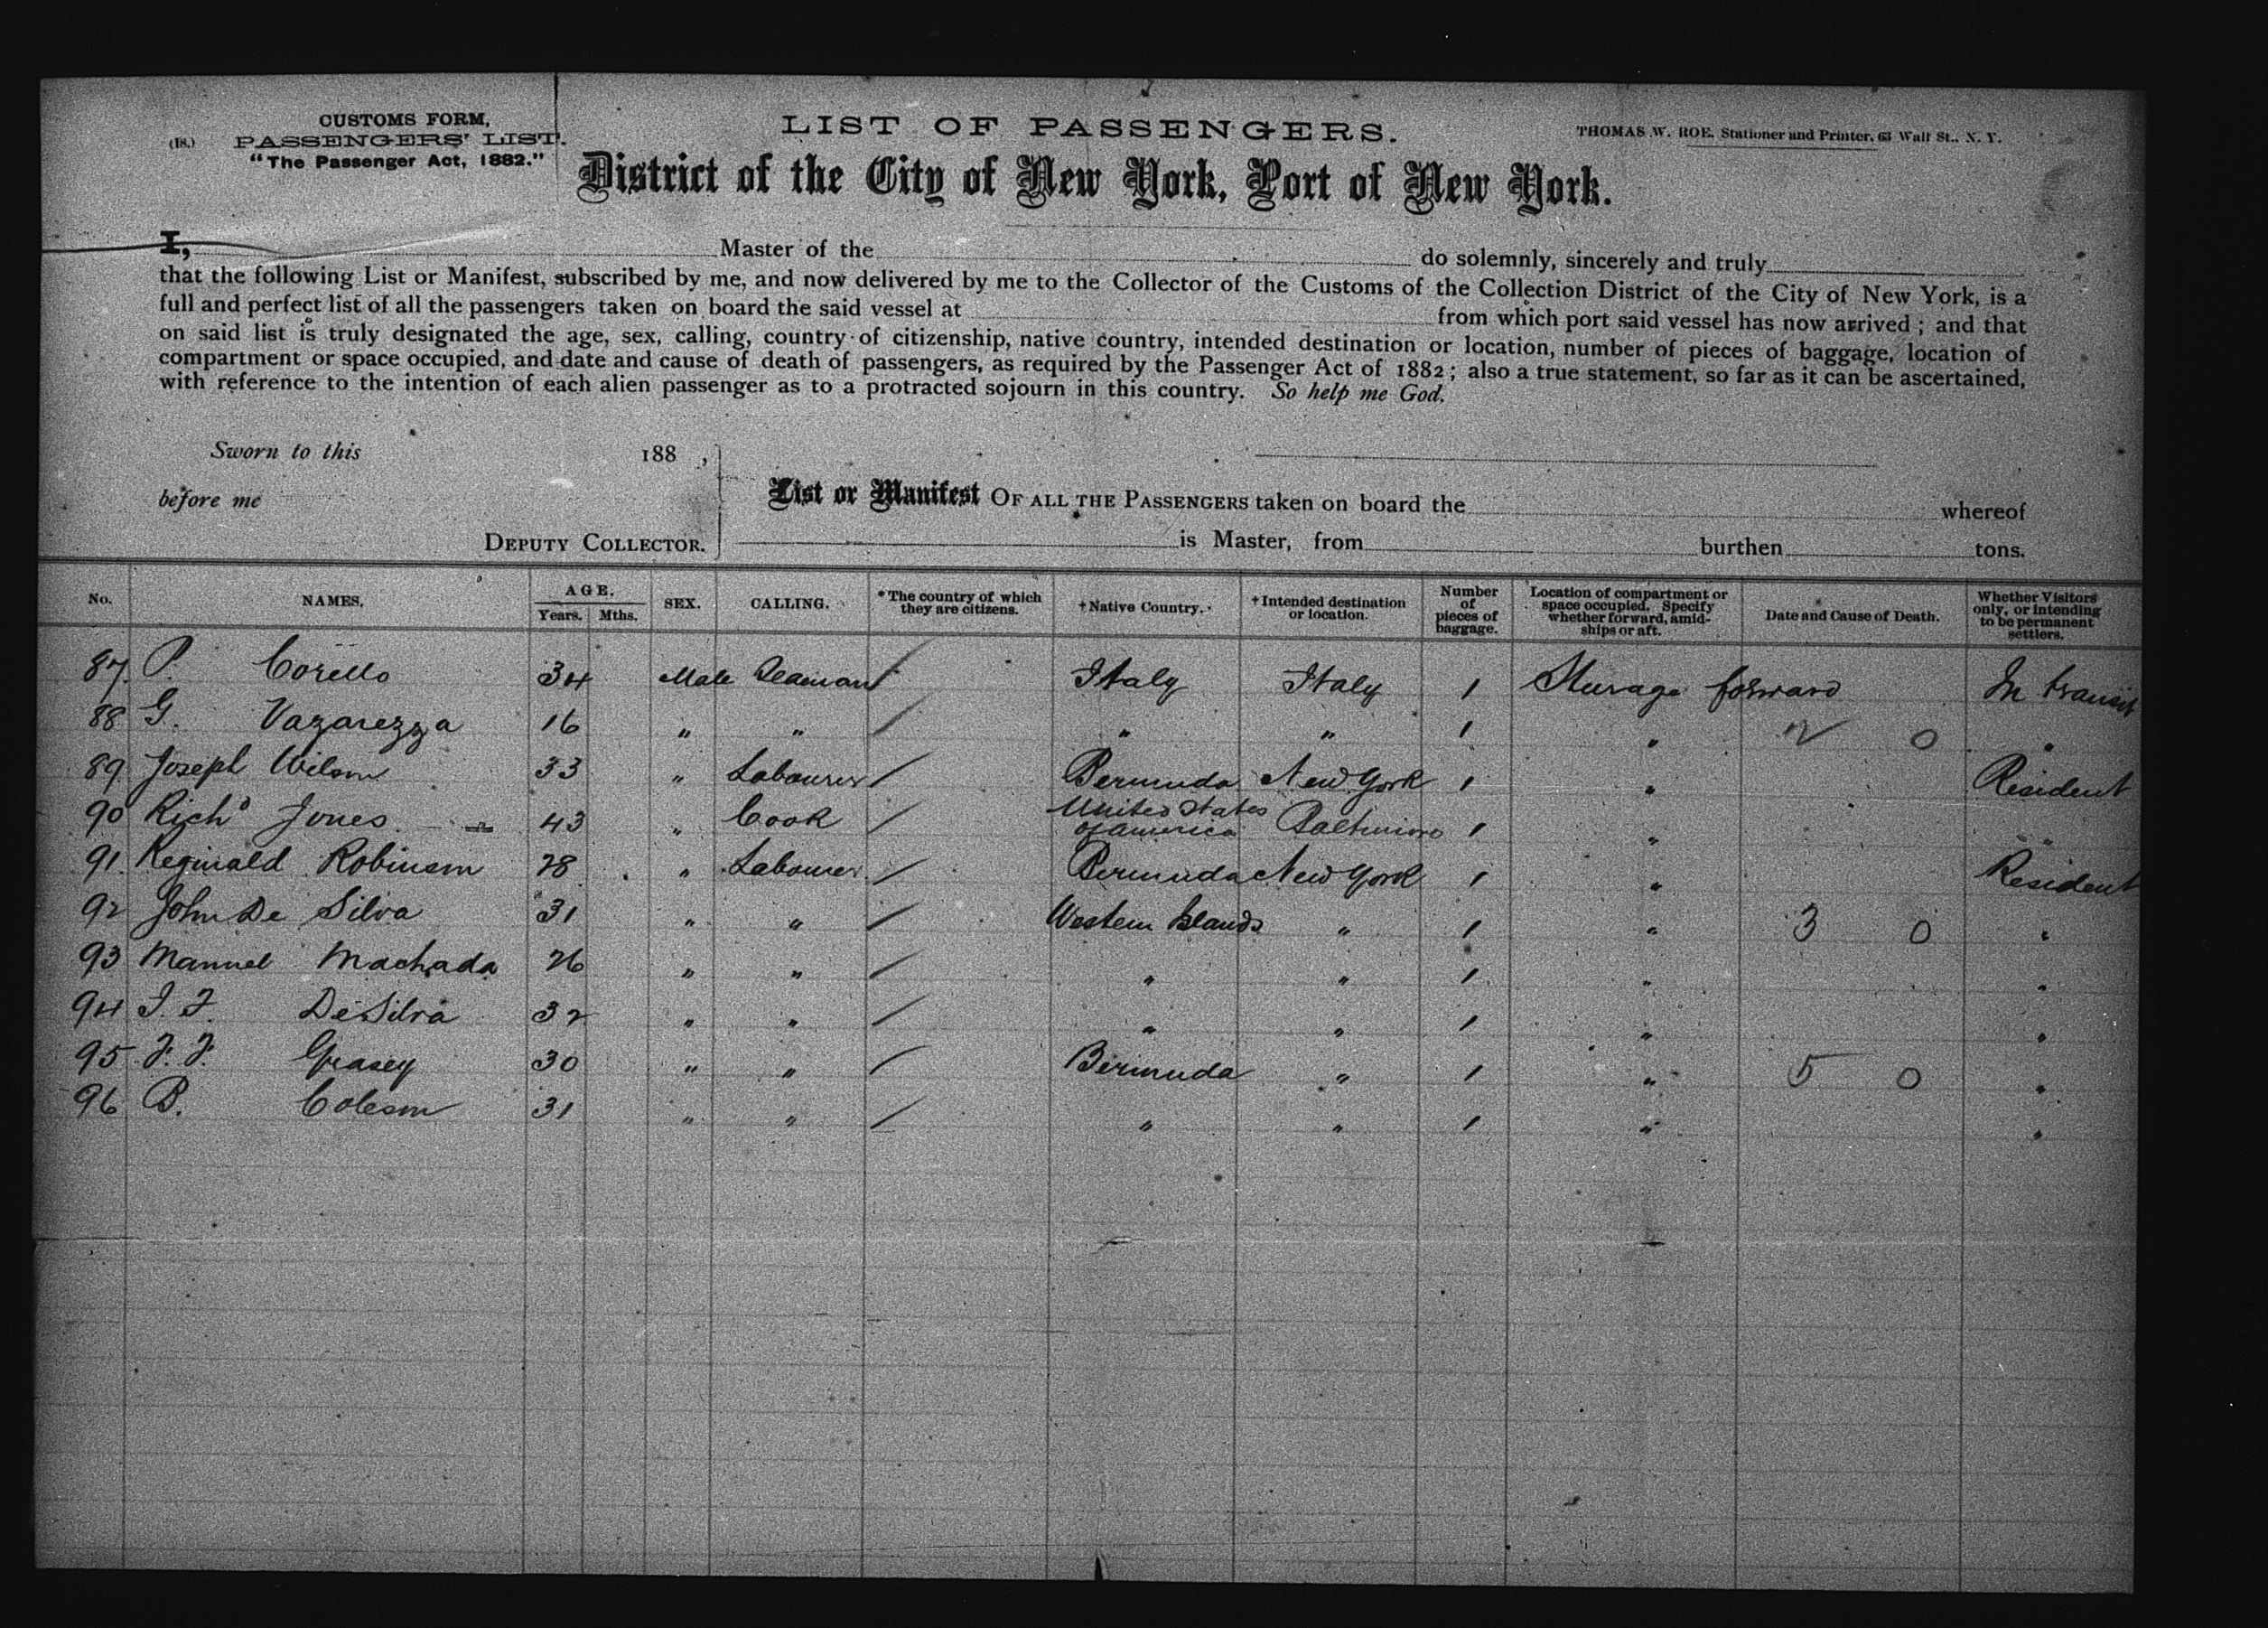 CUSTOMS FORM,
(18.) PASSENGERS' LIST.
"The Passenger Act, 1882."
LIST OF PASSENGERS.
THOMAS W. ROE, Stationer and Printer, 63 Wall St., N. Y.
District of the City of New York, Port of New York.
I, Master of the do solemnly, sincerely and truly
that the following List or Manifest, subscribed by me, and now delivered by me to the Collector of the Customs of the Collection District of the City of New York, is a
full and perfect list of all the passengers taken on board the said vessel at from which port said vessel has now arrived; and that
on said list is truly designated the age, sex, calling, country of citizenship, native country, intended destination or location, number of pieces of baggage, location of
compartment or space occupied, and date and cause of death of passengers, as required by the Passenger Act of 1882; also a true statement, so far as it can be ascertained,
with reference to the intention of each alien passenger as to a protracted sojourn in this country. So help me God.
Sworn to this 188 ,
before me
DEPUTY COLLECTOR.
List or Manifest OF ALL THE PASSENGERS taken on board the whereof
is Master, from burthen tons.
No. NAMES. AGE. Years. Mths. SEX. CALLING. *The country of which they are citizens. †Native Country. †Intended destination or location. Number of pieces of baggage. Location of compartment or space occupied. Specify whether forward, amidships or aft. Date and Cause of Death. Whether Visitors only, or intending to be permanent settlers.
87. P. Corello 34 Male Seaman / Italy Italy 1 Steerage forward In transit
88 G. Vazarezza 16 " " / " " 1 " 2 0 "
89 Joseph Wilson 33 " Labourer / Bermuda New York 1 " Resident
90 Richd Jones 43 " Cook / United States of America Baltimore 1 " "
91. Reginald Robinson 28 " Labourer / Bermuda New York 1 " Resident
92 John De Silva 31 " " / Western Islands " 1 " 3 0 "
93 Manuel Machada 26 " " / " " 1 " "
94 J. F. DeSilva 32 " " / " " 1 " "
95 F. F. 30 " " / Bermuda " 1 " 5 0 "
96 B. Coleson 31 " " / " " 1 " "